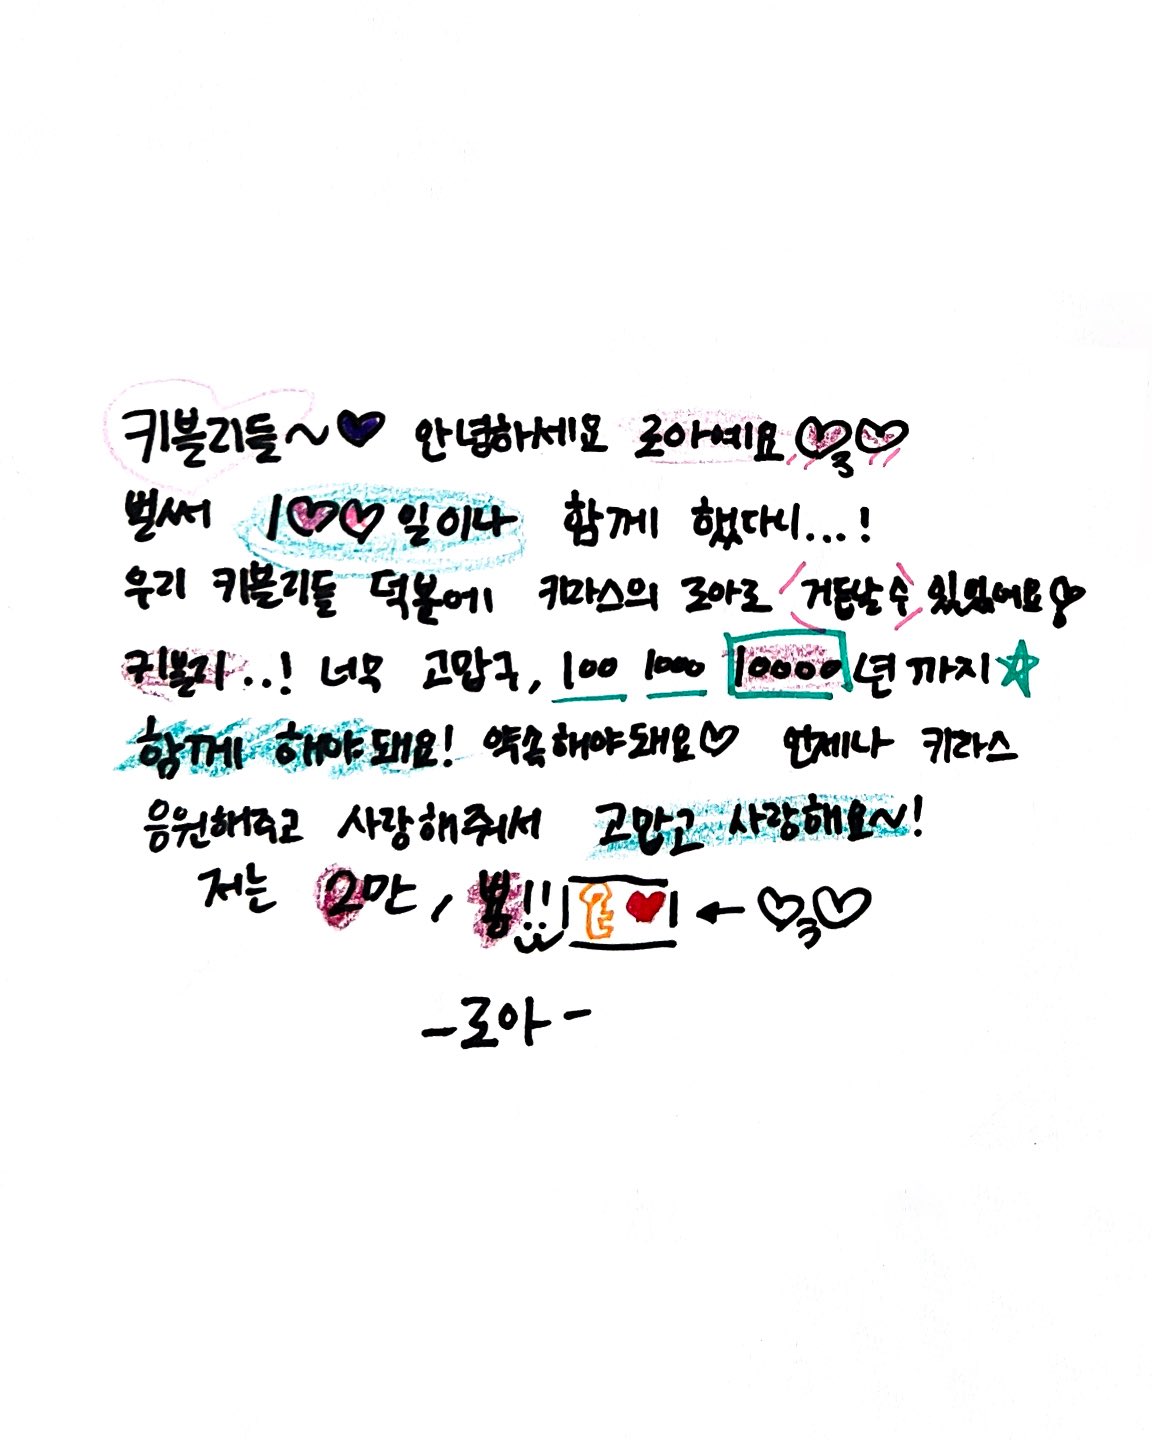 키블리들~♥ 안녕하세요 로아예요♡3♡
벌써 1♡♡일이나 함께 했다니...!
우리 키블리들 덕분에 키라스의 로아로 거듭날 수 있었어요♡
키블리..! 너무 고맙구, 100 1000 10000년까지☆
함께 해야돼요! 약속해야돼요♡ 언제나 키라스
응원해주고 사랑해줘서 고맙고 사랑해요~!
저는 2만, 뿅!! ♥ ← ♡3♡
-로아-